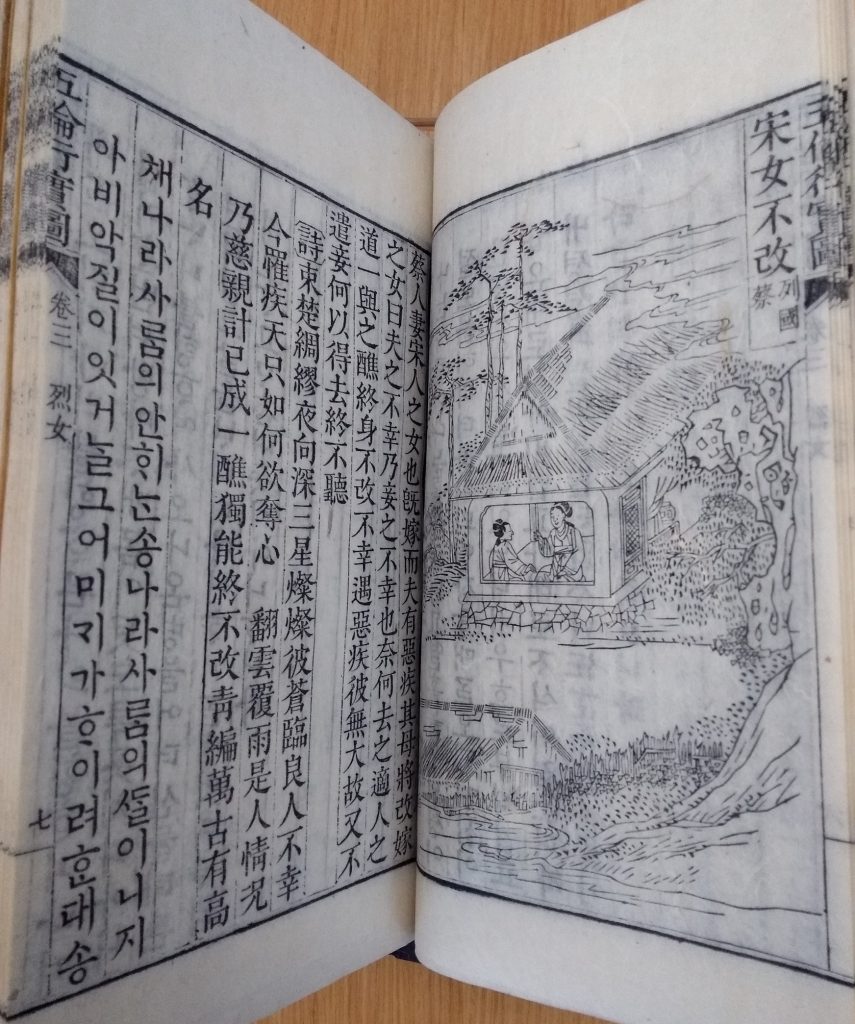 五倫行實圖
宋女不改 列國 蔡
蔡人妻宋人之女也旣嫁而夫有惡疾其母將改嫁
之女曰夫之不幸乃妾之不幸也奈何去之適人之
道一與之醮終身不改不幸遇惡疾彼無大故又不
遣妾何以得去終不聽
詩束楚綢繆夜向深三星燦燦彼蒼臨良人不幸
今罹疾天只如何欲奪心 翻雲覆雨是人情况
乃慈親計已成一醮獨能終不改靑編萬古有高
名
채나라사ᄅᆞᆷ의안ᄒᆡᄂᆞᆫ송나라사ᄅᆞᆷ의ᄯᆞᆯ이니지
아비악질이잇거ᄂᆞᆯ그어미ᄀᆡ가ᄒᆞ이려ᄒᆞᆫ대송
五倫行實圖 卷三 烈女 七